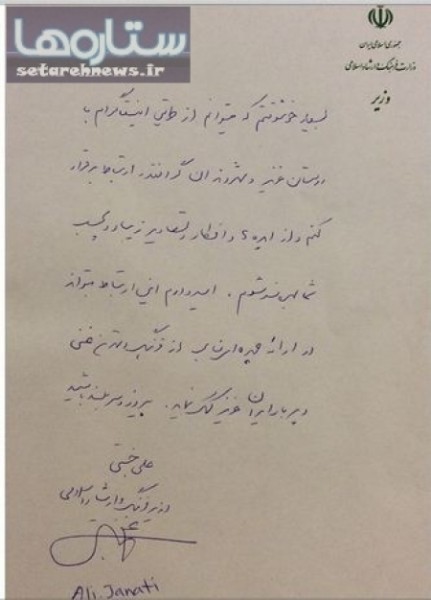 ستاره‌ها
setarehnews.ir
جمهوری اسلامی ایران
وزارت فرهنگ و ارشاد اسلامی
وزیر
بسیار خوشوقتم که میتوانم از طریق اینستاگرام با
دوستان عزیز و شهروندان گرانقدر ارتباط برقرار
کنم و از ایده ها و افکار و تصاویر زیبا و دلچسب
شما بهره مند شوم. امیدوارم این ارتباط بتواند
در ارائه چهره ای از فرهنگ و تمدن غنی
و پربار ایران عزیز کمک نماید. پیروز و سربلند باشید
علی جنتی
وزیر فرهنگ و ارشاد اسلامی
Ali.Janati